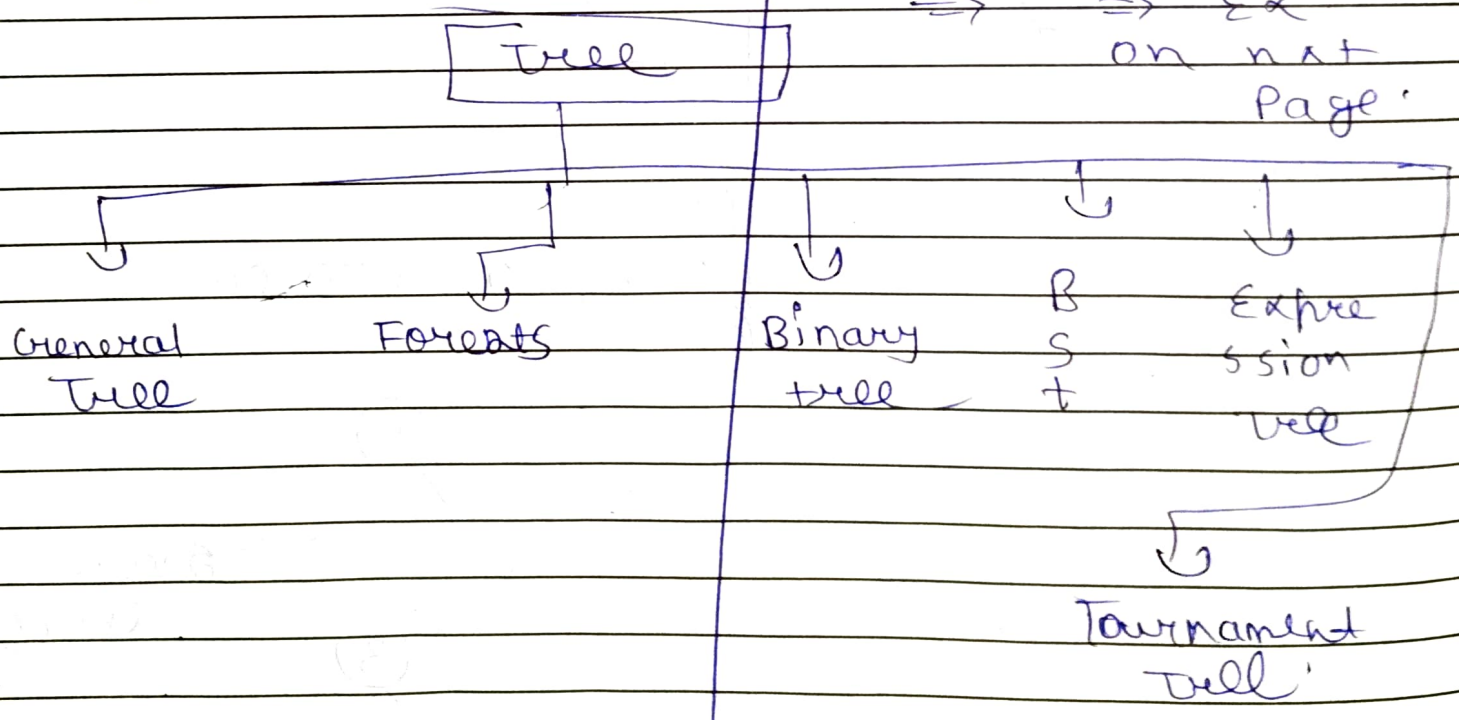 ⇒ ⇒ Ex
Tree
on nxt
Page.
General
Tree
Forests
Binary
tree
B
S
t
Expre
ssion
tree
Tournament
Tree.